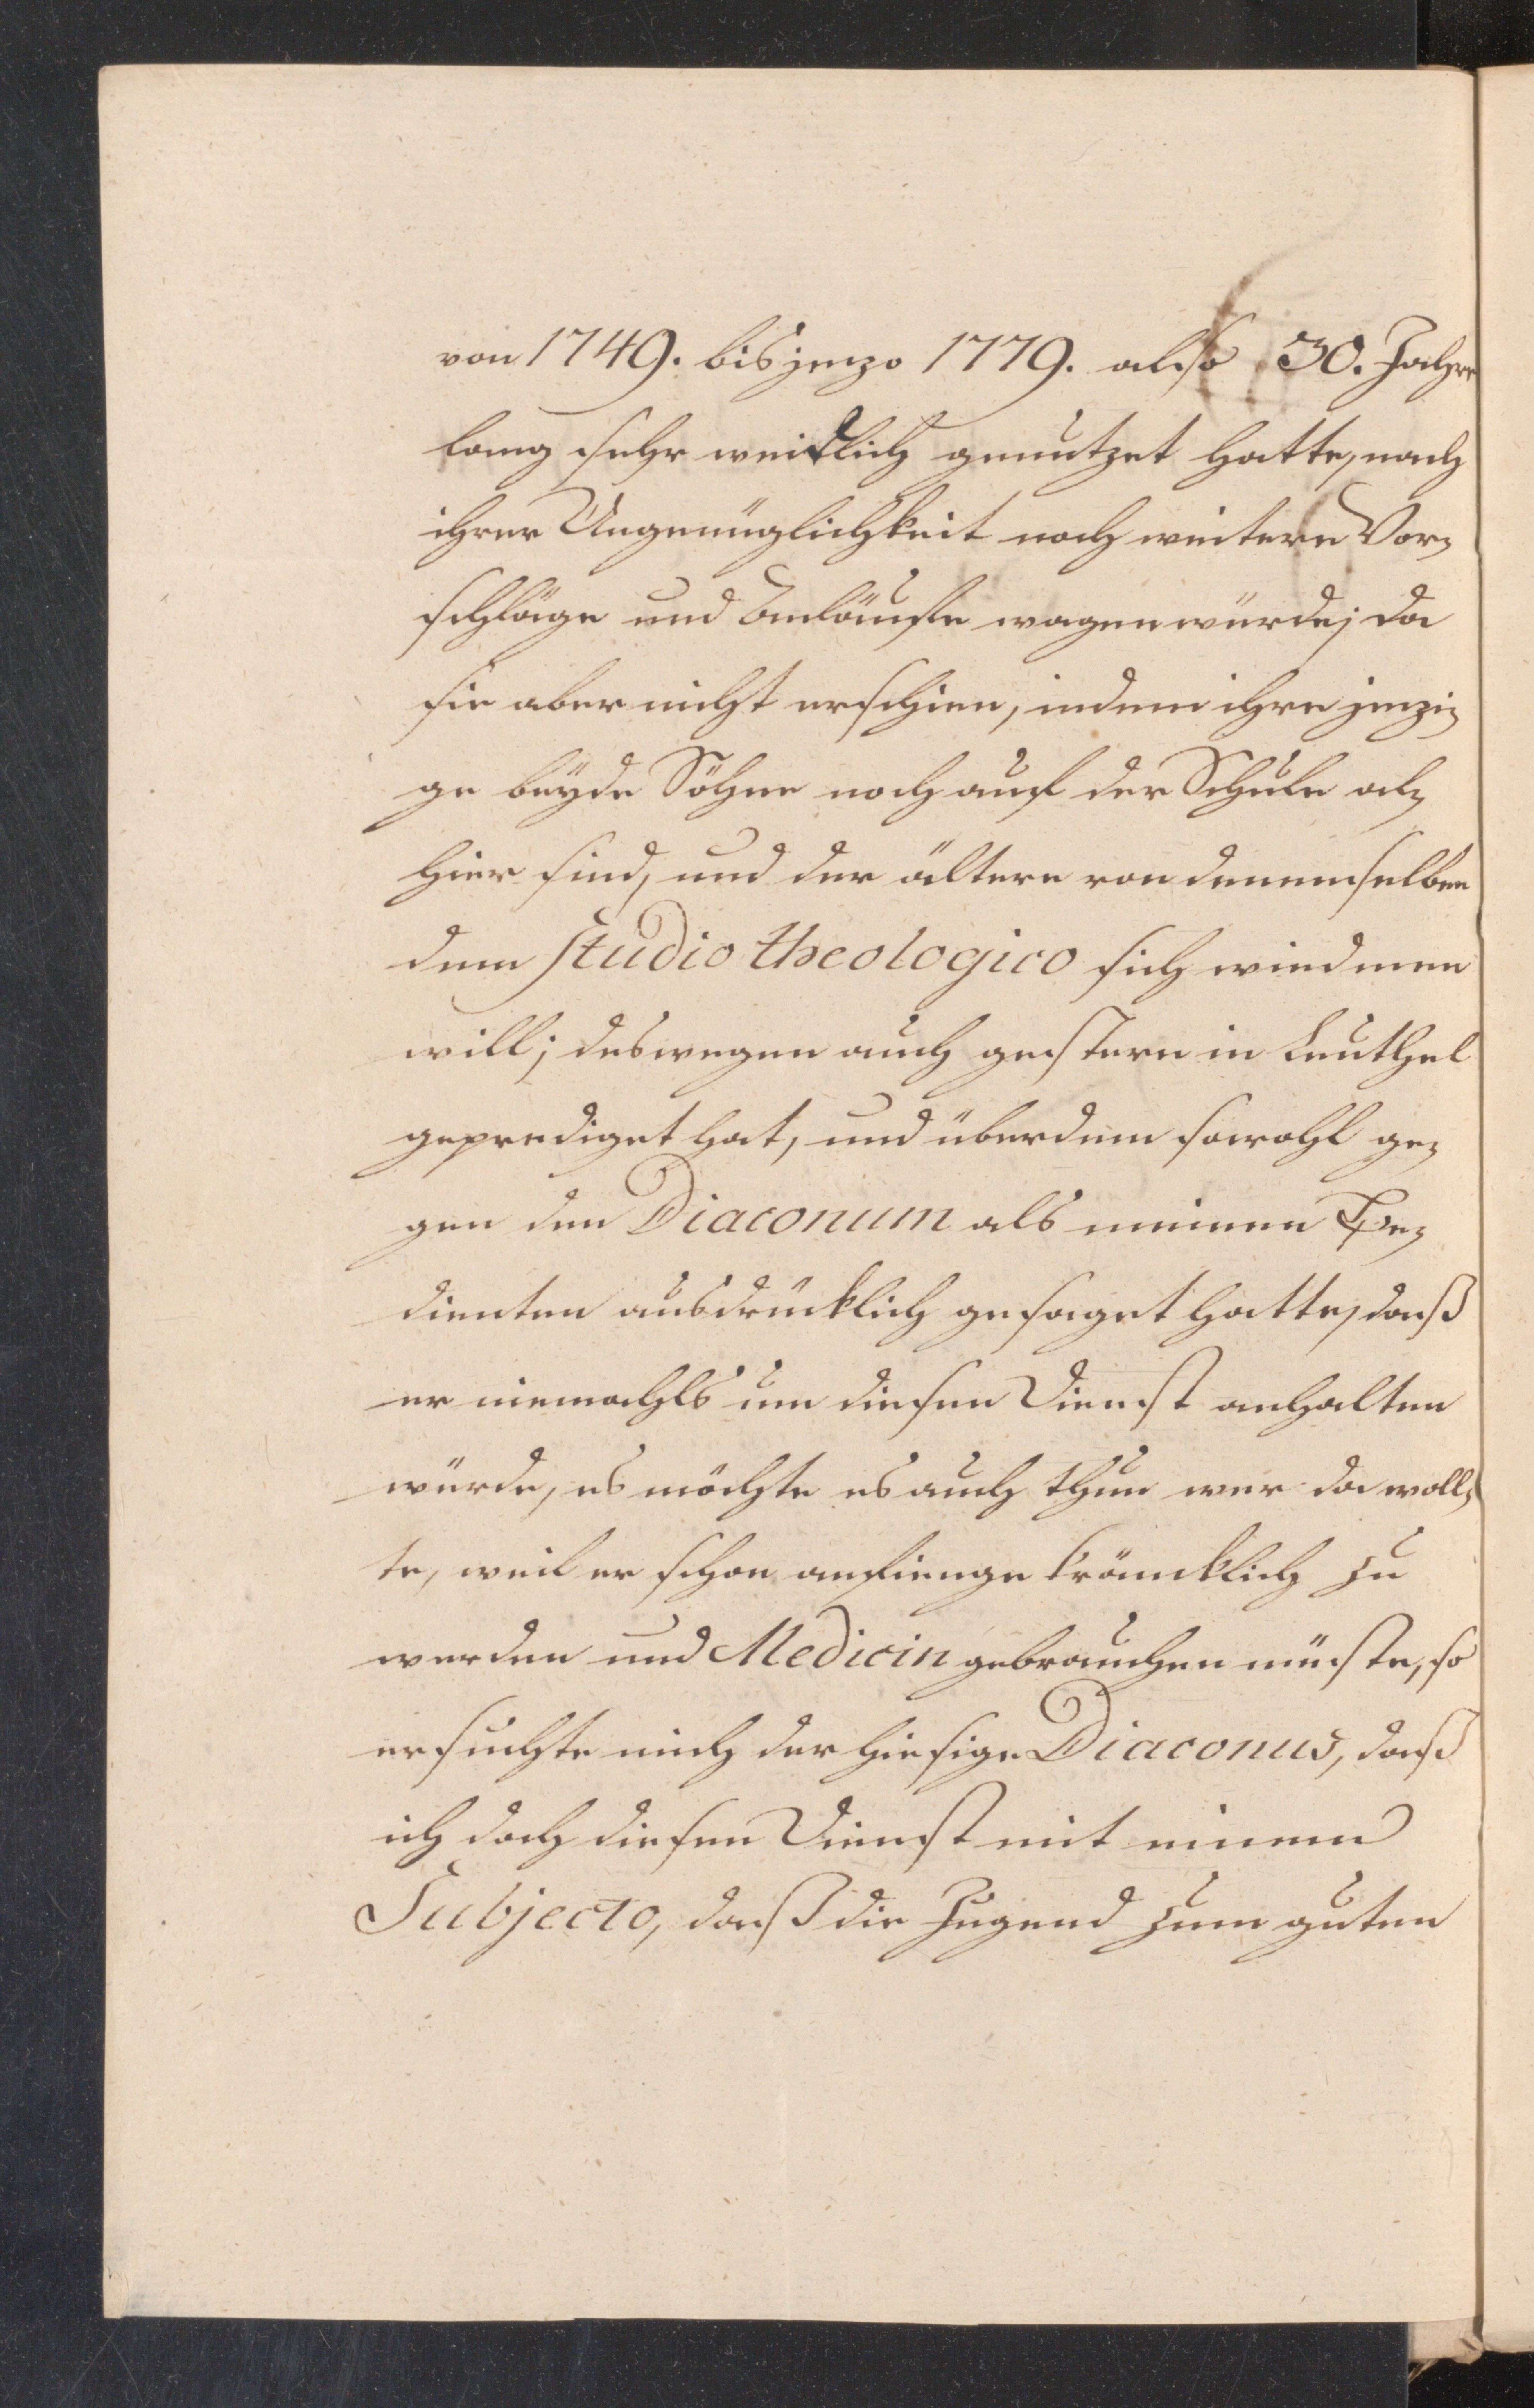 von 1749. bis jenzo 1779. also 30. Jahre
lang sehr weidlich genutzet hatte, nach
ihrer Ungenüglichkeit noch weitere Vor-
schläge und Anläuffe wagen würde; da
sie aber nicht erschien, indem ihre jenzi-
ge beyde Söhne noch auf der Schule al-
hier sind, und der ältere von denenselben
dem studio theologico sich wiedmen
will; deswegen auch gestern in Leuthel
geprediget hat, und überdem sowohl ge-
gen den Diaconum als meinen Be-
dienten ausdrücklich gesaget hatte, daß
er niemahls um diesen Dienst anhalten
würde, es möchte es auch thun wer da woll-
te, weil er schon anfienge kräncklich zu
werden und Medicin gebrauchen müste, so
ersuchte mich der hiesige Diaconus, daß
ich doch diesen Dienst mit einem
Subjecto, daß die Jugend zum guten